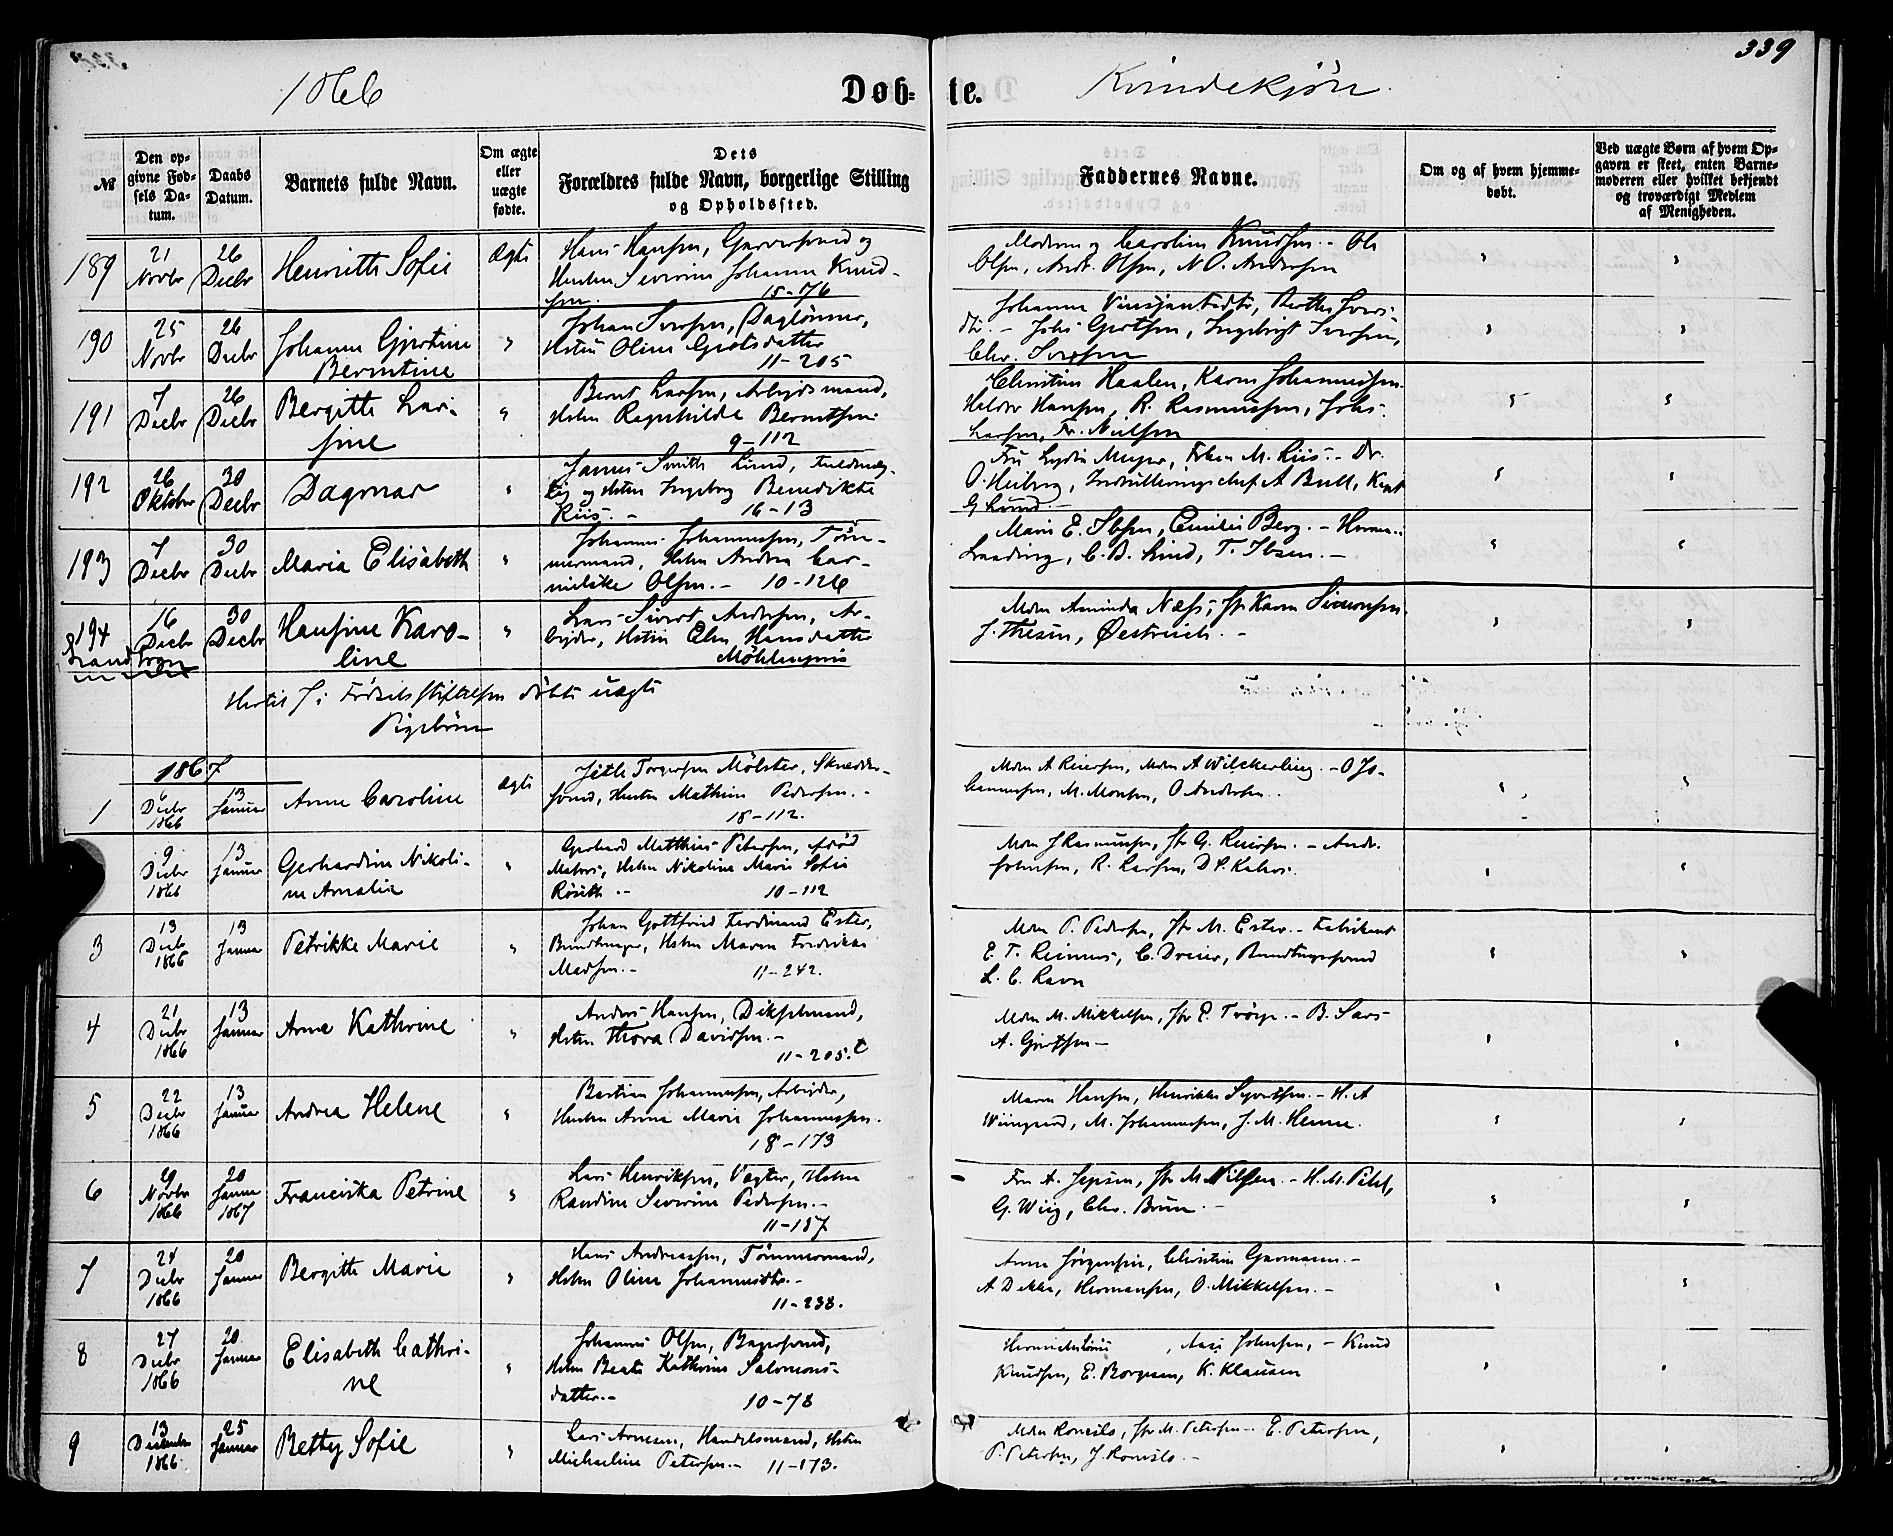 339
1866
Døb=
te.
Kvindekjön.
№
Den op=
givne Fød=
sels Da=
tum.
Daabs
Datum.
Barnets fulde Navn.
Om ægte
eller
uægte
fødte.
Dets
Forældres fulde Navn, borgerlige Stilling
og Opholdssted.
Faddernes Navne.
Om og af hvem hjemme=
døbt.
Ved uægte Børn af hvem Op=
gaven er skeet, enten Barne=
moderen eller hvilket bekjendt
og troværdigt Medlem
af Menigheden.
189
21
Novbr
26
Decbr
Henriette Sofie
Ægte
Hans Hansen, Garversvend og
Hustru Severine Johanne Knud-
sen. 15-76
Moderen og Caroline Knudsen. - Ole
Olsen, Andr. Olsen, N O. Andersen
190
25
Novbr
26
Decbr
Johanne Gjertine
Berntine
"
Johan Iversen, Daglönner,
Hustru Oline Gjertsdatter
11-205
Johanne
dtr. - Johs Gjertsen, Ingebrigt Iversen,
Chr. Iversen
191
7
Decbr
26
Decbr
Bergitte Lar-
sine
"
Bernt Larsen, Arbejdsmand,
Hustru Ragnhilda Berntsen.
9-112
Christine Haalen, Karen Johannessen.
Halvor Hansen, R. Rasmussen, Johs.
Larsen, Fr. Nielsen
192
26
Oktober
30
Decbr
Dagmar
"
James Smith Lund, Fuldmæg-
tig og Hustru Ingeborg Benedikte
Riis. - 16-13
Fru Lydia Meyer, Frken M. Riis. - Dr.
O. Heiberg, Indrulleringschef A Bull, Kapt
G Lund. -
193
7
Decbr
30
Decbr
Maria Elisabeth
"
Johannes Johannessen, Töm-
mermand, Hustru Andrea Cor-
nielske Olsen. - 10-126
Marie E. Ibsen, Emilie Berg. - Herm.
Lnading, C. B. Lind, T. Ibsen. -
194
Strand Sogn
16
Decbr
30
Decbr
Hansine Karo-
line
"
Lars Sivert Andersen, Ar-
bejder, Hustru Elen Hansdatter
Möhlenpris
Mdm Aminda Næss, Jfr Karen Simonsen.
J. Thesen, Östrech. -
Hertil 7 i Födselsstiftelsen döbte uægte
Pigebörn
1867
1
6
Decbr
1866
13
Januar
Anne Caroline
Ægte
Jetle Torgersen Mölster, Skrædder-
svend, Hustru Mathine Pedersen. -
18-112.
Mdm A Reiersen, Mdm A Wilckerling. - O Jo-
hannesen, M. Monsen, O Andersen.
9
Decbr
1866
13
Januar
Gerhardine Nikoli-
ne Amalia
"
Gerhard Matthias Petersen, afdöd
Matros, Hustru Nikoline Marie Sofie
Röseth. - 10-112
Mdm J Rasmussen, Jfr G. Reiersen. - Andr.
Johnsen, R. Larsen, D P. Kahrs.
3
13
Decb
1866
13
Januar
Petrikke Marie
"
Johan Gottfried Ferdinand Ester,
Bundtmager, Hustru Maren Fredrikke
Madsen. - 11-242.
Mdm P. Pedersen, Jfr M. Ester. - Fabrikant
E. T. Reimers, C. Dreier, Bundtmagersvend
L. C. Ravn
4
21
Decbr
1866
13
Januar
Anna Kathrine
"
Anders Hansen, Dikselmand,
Hustru Thora Davidsen. -
11-205.c
Mdm M. Mikkelsen, Jfr P. Tvörge. - B. Sars
A. Gjertsen -
5
22
Decbr
1866
13
Januar
Andrea Helene
"
Bastian Johannesen, Arbejder,
Hustru Anna Marie Johannessen.
18-173
Maren Hansen, Henrikke Syvertsen. - H. A
Wiingaard, M. Johannesen, J. M. Henne.
6
9
Novbr
1866
20
Januar
1867
Franciska Petrine
"
Lars Henriksen, Vægter, Hustru
Randine Severine Pedersen. -
11-187
Fru A. Jepsen, Jfr M. Nilsen. - H. M. Pihl,
G. Wiig, Chr. Brun. -
7
24
Decbr
1866
20
Januar
Bergitte Marie
"
Hans Andreassen, Tömmermand,
Hustru Oline Johannesdtr. -
11-238.
Anne Jörgensen, Christine Garmann. -
A Dekke, Hermansen, O. Mikkelsen. -
8
27
Decbr
1866
20
Januar
Elisabeth Cathri-
ne
"
Johannes Olsen, Bagersvend,
Hustru Beate Kathrine Salomons-
datter. - 10-78
Johnsen, - Knud
Knudsen, E. Borgesen, K. Klausen
9
13
December
1866
25
Januar
Betty Sofie
"
Lars Arnesen, Handelsmand, Hustru
Michaeline Petersen. - 11-173.
Mdm Ronsilo, Jfr M. Petersen - E. Petersen,
P. Petersen, J. Ronsilo. -